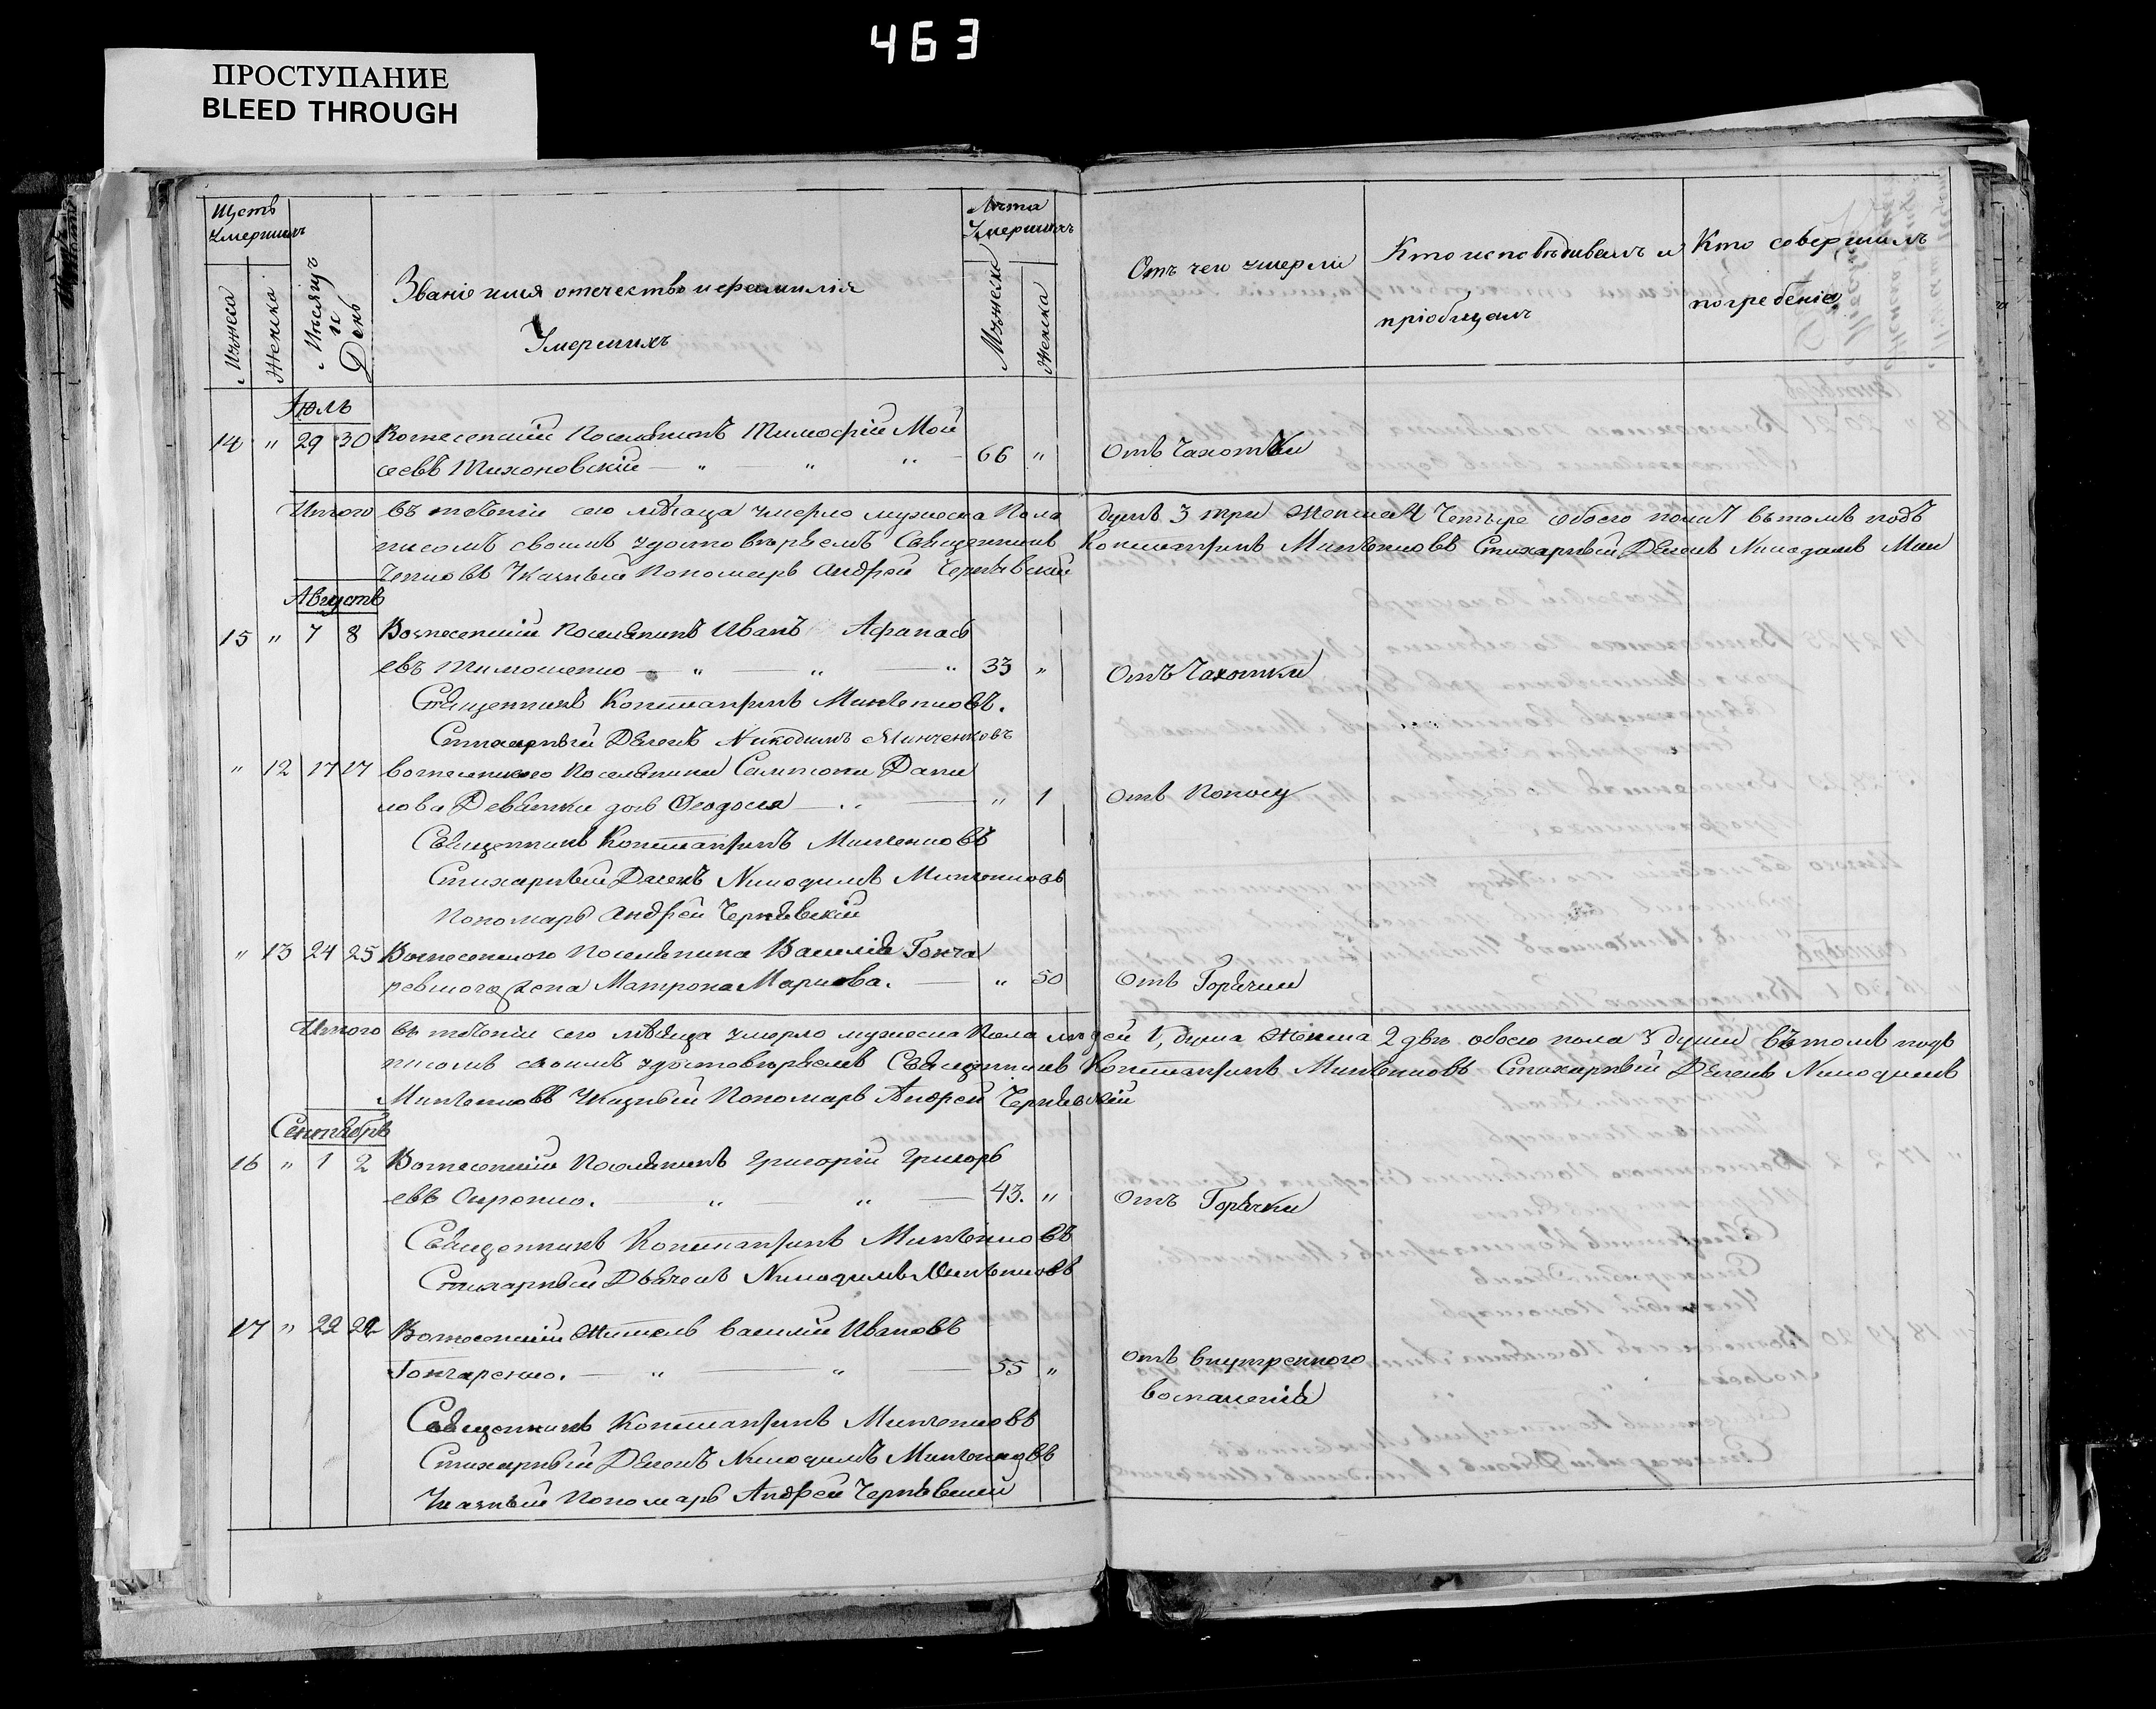 463
ПРОСТУПАНИЕ
BLEED THROUGH
Щетъ Умершихъ
Мужеска
Женска
Месяцъ и День
Званіе имя отечество и фамилія
Умершихъ
Лѣта Умершихъ
Мужеска
Женска
Отъ чего умерли
Кто исповѣдивалъ и
пріобщалъ
Кто совершилъ
погребеніе
Іюль
14 " 29 30 Вознесенскій Поселянинъ Тимофѣй Мой
сеевъ Тихоновскій — " — " — " 66 " Отъ Чахотки
Итого въ теченіи сего мѣсяца умерло мужеска Пола душъ 3 три Женска 4 Четыре обоего пола 7 въ томъ под
писомъ своимъ удостовѣряемъ Священникъ Константинъ Минченковъ Стихарный Дячекъ Никодимъ Мин
ченковъ Указный Пономарь Андрей Чернявскій
Августъ
15 " 7 8 Вознесенскій Поселянинъ Иванъ Афанась
евъ Тимошенко — " — " — " 33 " Отъ Чахотки
Священникъ Константинъ Минченковъ.
Стихарный Дячекъ Никодимъ Минченковъ
" 12 17 17 Вознесенского Поселянина Дани
лова дочь Феодосия — " 1 Отъ Поносу
Священникъ Константинъ Минченковъ
Стихарный Дячекъ Никодимъ Минченковъ
Пономарь Андрей Чернявскій
" 13 24 25 Вознесенского Поселянина Василія Гонча
ревского жена Матрона Маркова. — " 50 Отъ Горячки
Итого въ теченіи сего мѣсяца умерло мужеска Пола людей 1, душа Женска 2 двѣ обоего пола 3 души въ томъ подъ
писомъ своимъ удостовѣряемъ Священникъ Константинъ Минченковъ Стихарный Дячекъ Никодимъ
Минченковъ Указный Пономарь Андрей Чернявскій
Сентябрь
16 " 1 2 Вознесенскій Поселянинъ Григорій Григорь
евъ — " — " — 43. " Отъ Горячки
Священникъ Константинъ Минченковъ
Стихарный Дьячекъ Никодимъ Минченковъ
17 " 22 22 Вознесенскій Житель Василій Ивановъ
Гончаренко. — " — " — 55 " Отъ внутренного
воспаленія
Священникъ Константинъ Минченковъ
Стихарный Дячекъ Никодимъ Минченковъ
Указный Пономарь Андрей Чернявскій